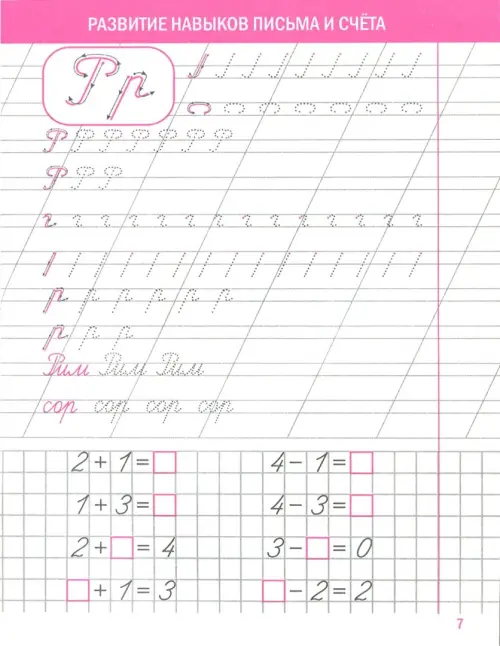 РАЗВИТИЕ НАВЫКОВ ПИСЬМА И СЧЁТА
Р р
Р Р Р Р Р Р Р
Р Р Р
р р р р р р р
р р р р
Рим Рим Рим
сор сор сор сор
2 + 1 = □ 4 - 1 = □
1 + 3 = □ 4 - 3 = □
2 + □ = 4 3 - □ = 0
□ + 1 = 3 □ - 2 = 2
7